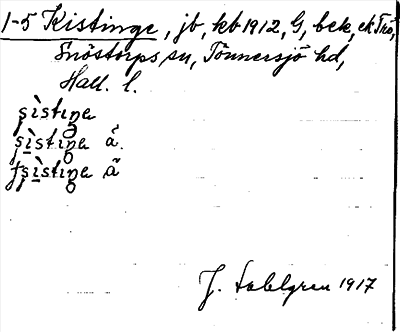 1-5 Kistinge, jb, kb 1912, G, bek, ek Trö,
Snöstorps sn, Tönnersjö hd,
Hall. l.
ṣìstiŋa
ṣìstiŋa å.
tṣìstiŋa å
J. Sahlgren 1917